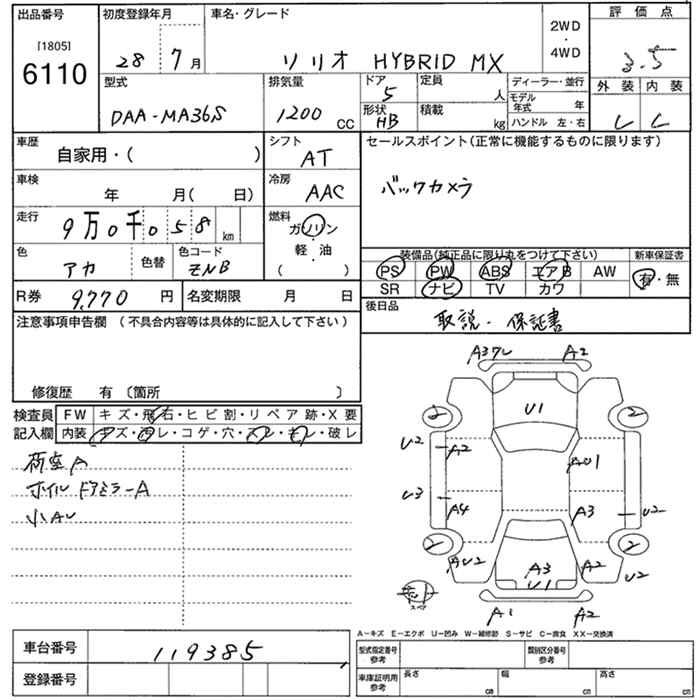 出品番号 初度登録年月 車名・グレード 2WD・4WD 評価点
[1805]
6110
28 7月 ソリオ HYBRID MX 3.5
型式 排気量 ドア 定員 ディーラー・並行 外装 内装
DAA-MA36S 1200 CC 5 人 モデル年式 年
形状 積載 HB kg ハンドル 左・右 C C
車歴 シフト セールスポイント(正常に機能するものに限ります)
自家用・( ) AT
車検 冷房 バックカメラ
年 月( 日) AAC
走行 燃料
9万0千058 km ガソリン
軽・油
( )
色 色替 色コード 装備品(純正品に限り丸をつけて下さい) 新車保証書
アカ ZNB PS PW ABS エアB AW 有・無
R券 9,770 円 名変期限 月 日 SR ナビ TV カワ
注意事項申告欄 (不具合内容等は具体的に記入して下さい) 後日品
取説・保証書
修復歴 有〔箇所 〕
検査員 FW キズ・飛石・ヒビ割・リペア跡・X要
記入欄 内装 キズ・ヨレ・コゲ・穴・スレ・キレ・破レ
荷室A
ホイル ドアミラーA
小AU
A3 A2
U1
2 2
U2 A2 AU1
U3 A4 A3 U2
2 2
AU2 A3 A2 U2
U1
スペア
A1 A2
A-キズ E-エクボ U-凹み W-補修跡 S-サビ C-腐食 XX-交換済
車台番号 119385 型式指定番号 参考 類別区分番号 参考
登録番号 車庫証明用 参考 長さ cm 幅 cm 高さ cm